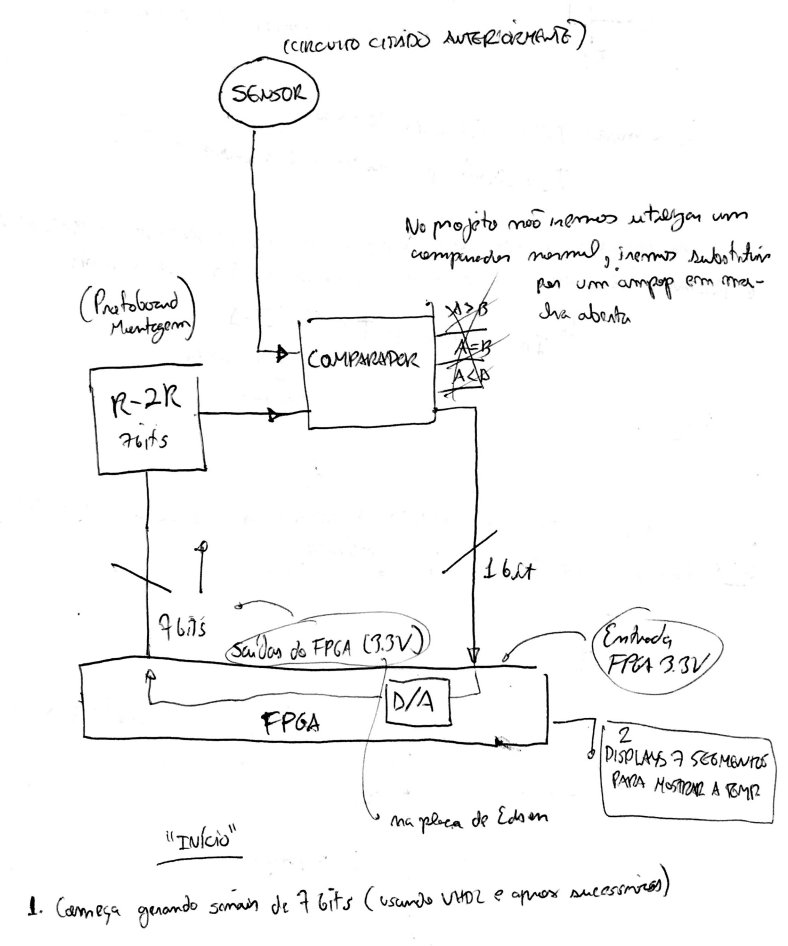 (CIRCUITO CITADO ANTERIORMENTE)
SENSOR
No projeto não iremos utilizar um
comparador normal, iremos substituir
por um ampop em ma-
lha aberta
(Protoboard
Montagem)
A>B
A=B
A<B
COMPARADOR
R-2R
7 bits
1 bit
7 bits
Saídas do FPGA (3.3V)
Entrada
FPGA 3.3V
D/A
FPGA
2
DISPLAYS 7 SEGMENTOS
PARA MOSTRAR A TEMP
na placa de Edson
"INÍCIO"
1. Começa gerando sinais de 7 bits (usando VHDL e aprox sucessivas)